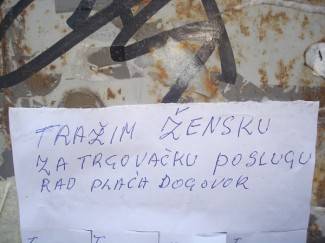 TRAŽIM ŽENSKU
ZA TRGOVAČKU POSLUGU
RAD PLAĆA DOGOVOR